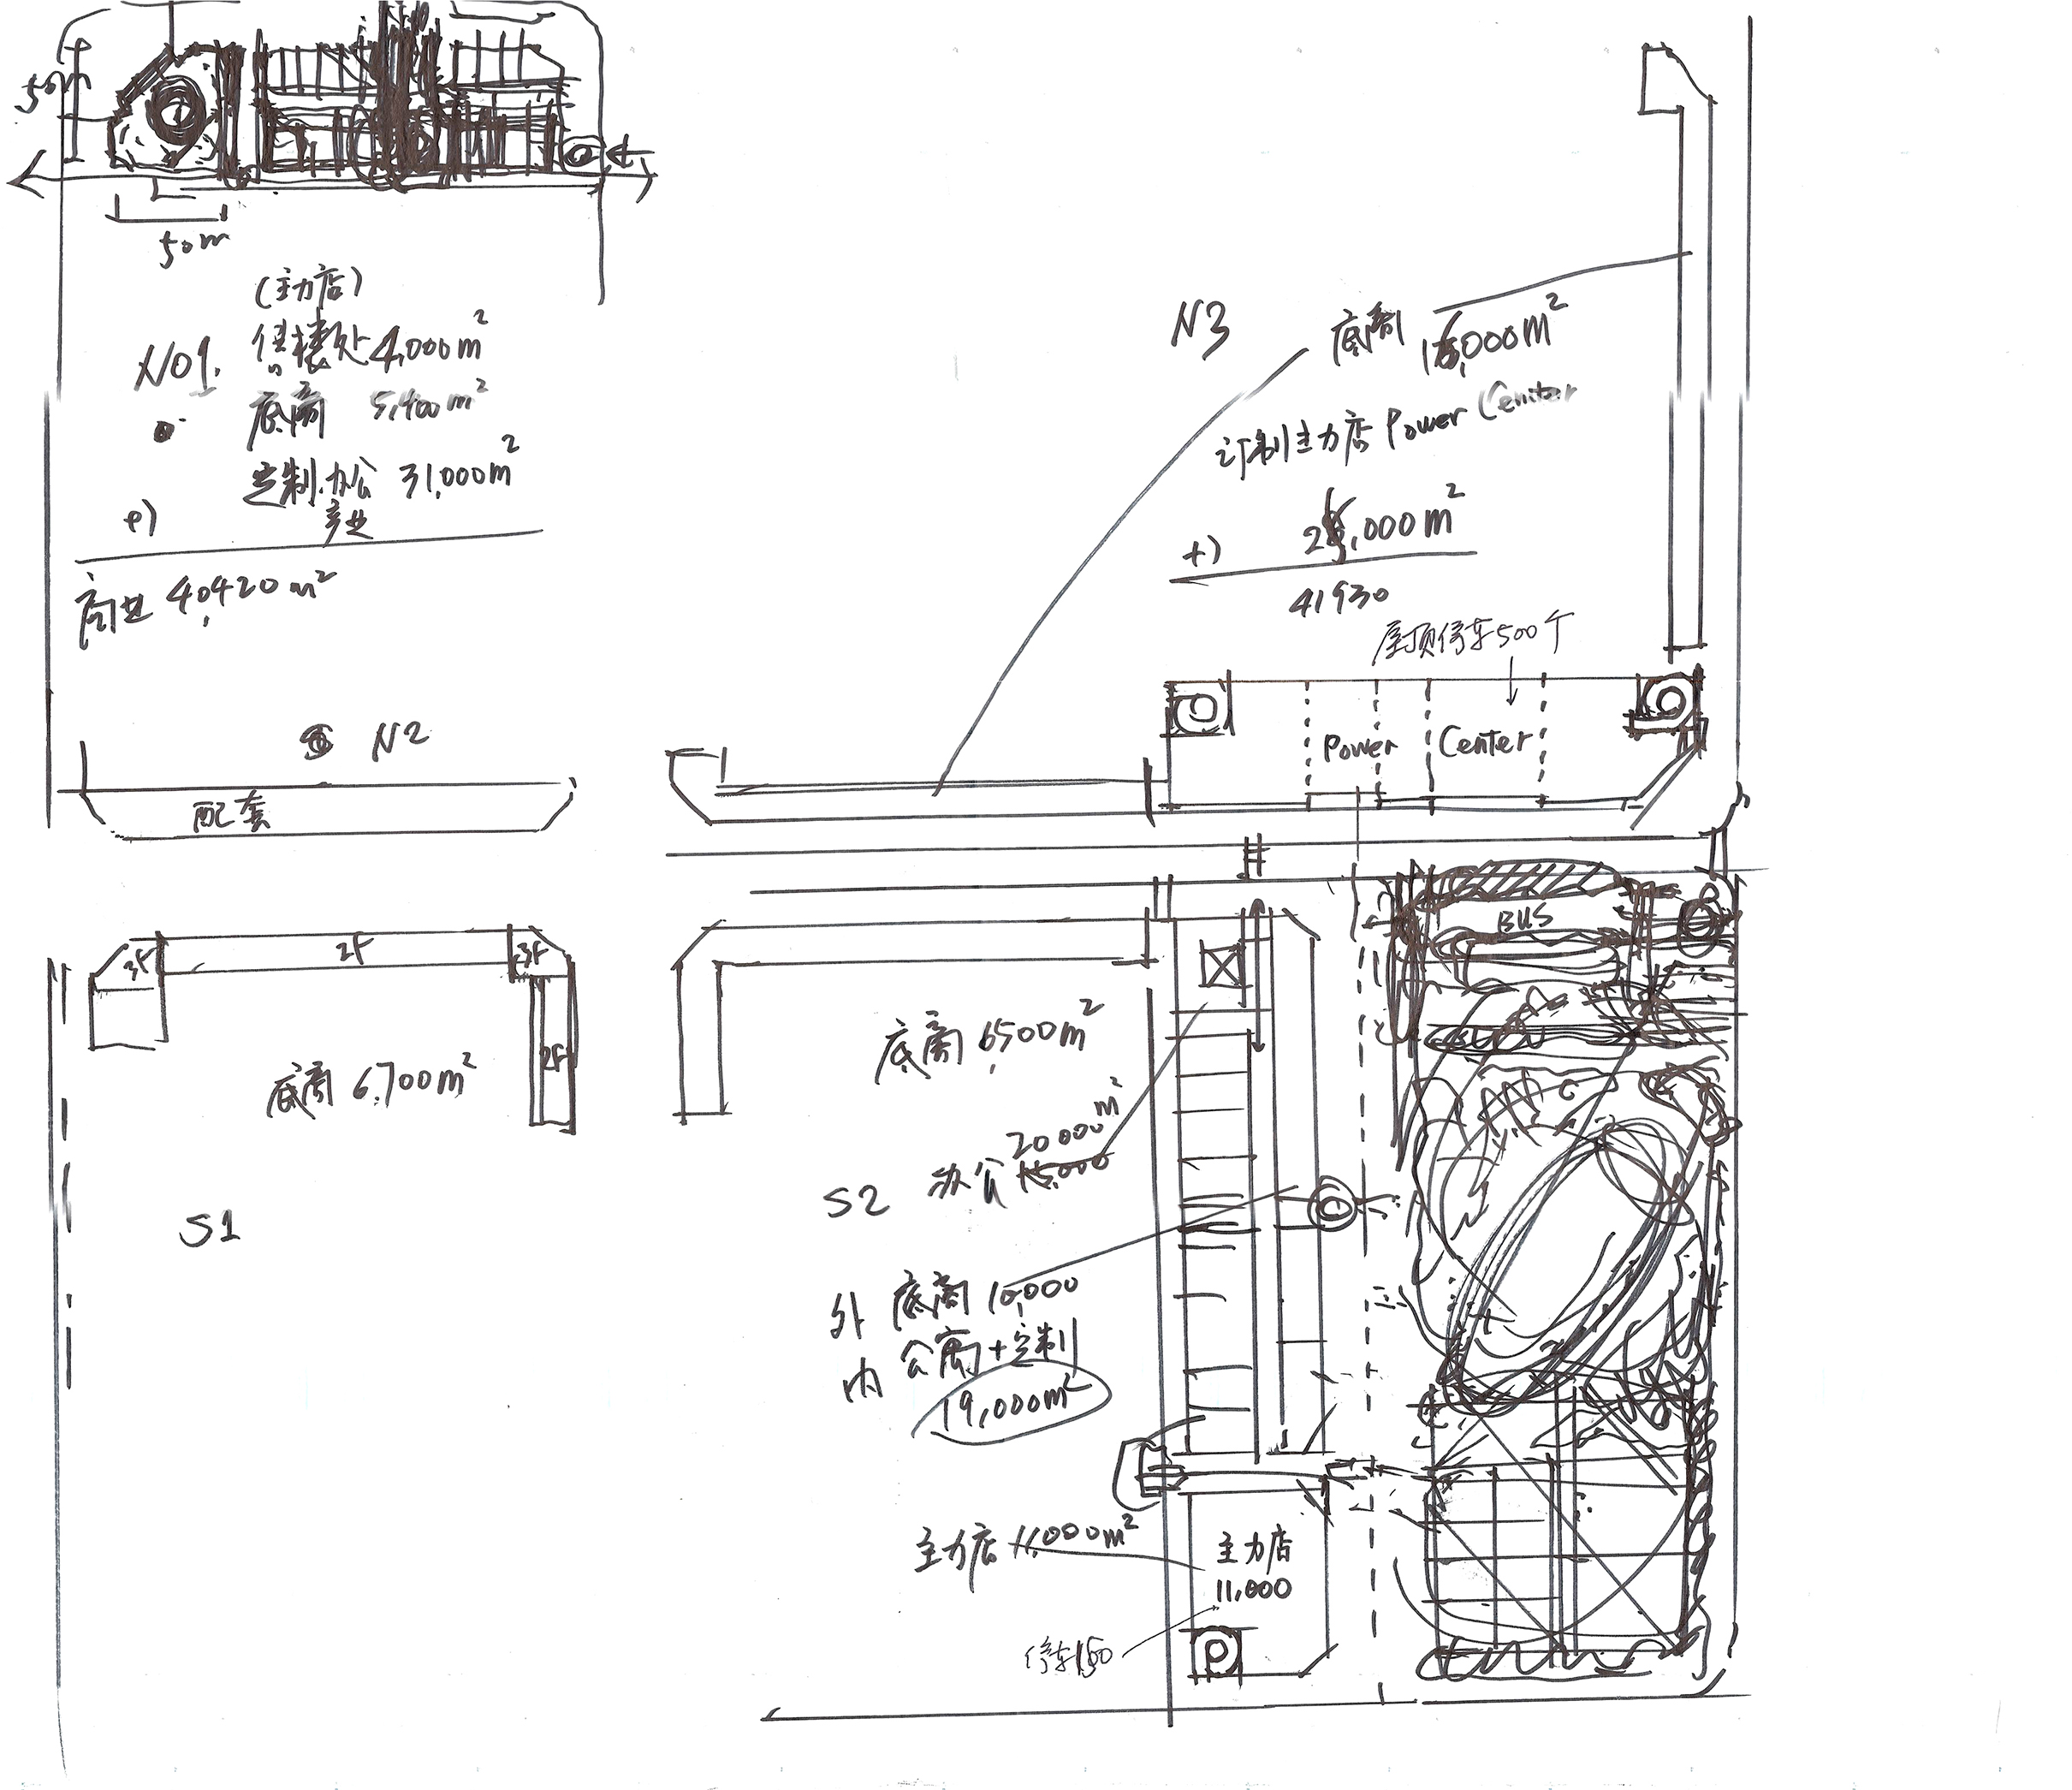 50m
50m
(主力店)
N01. 售楼处 4,000m²
底商 5,400m²
定制办公 31,000m²
产业
+)
商业 40,420m²
N2
配套
N3
底商 16,000m²
订制主力店 Power Center
+) 26,000m²
41930
屋顶停车500个
Power Center
BUS
3F
2F
3F
2F
底商 6,700m²
S1
底商 6,500m²
20000m²
S2 办公 15,000
外 底商 10,000
内 公寓+定制
19,000m²
主力店 11,000m²
主力店
11,000
停车150
P